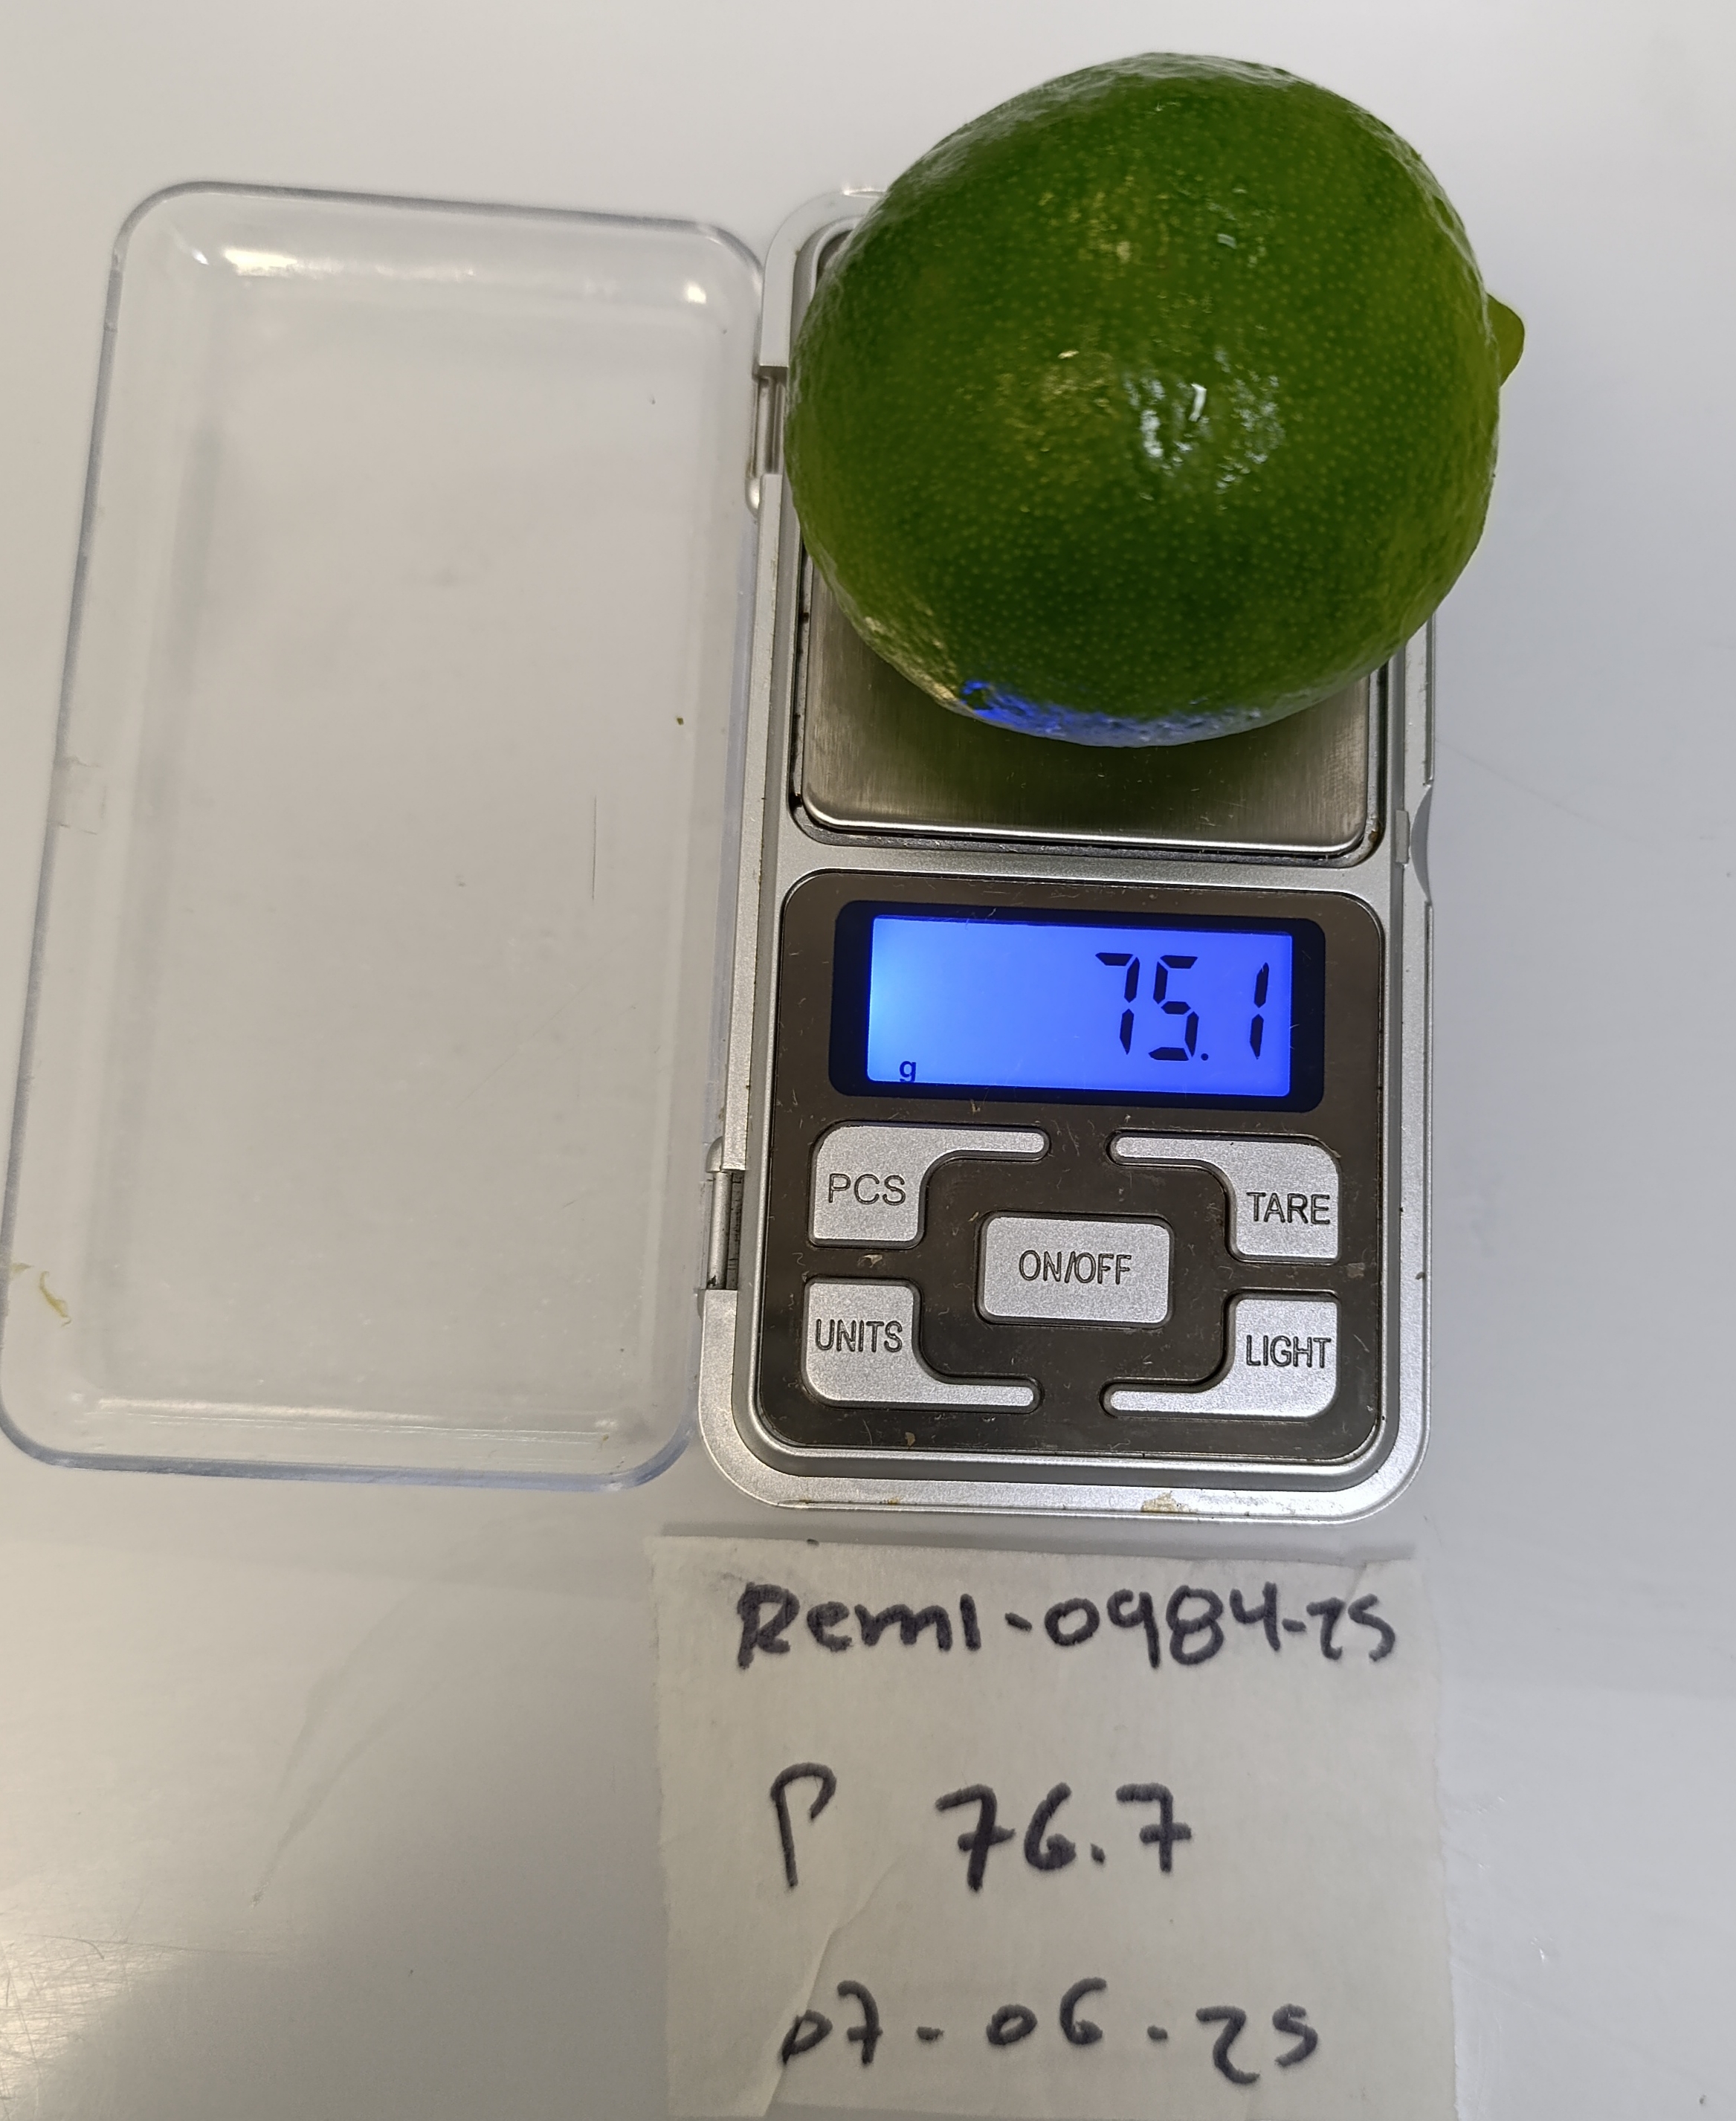 75.1
g
PCS
TARE
ON/OFF
UNITS
LIGHT
Reml-0984-25
P 76.7
07-06-25